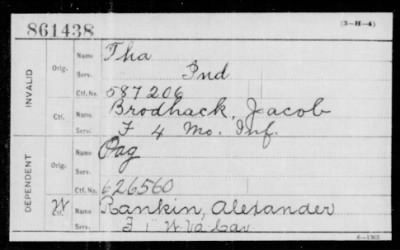 861438
(3-H-4)
INVALID
Orig.
Name
Tha
Serv.
Ind
Ctf. No.
587206
Ctf.
Name
Brodhack, Jacob
Serv.
F 4 Mo. Inf.
DEPENDENT
Orig.
Name
Oag
Serv.
Ctf. No.
626560
W
Ctf.
Name
Rankin, Alexander
Serv.
F 1 W Va Cav